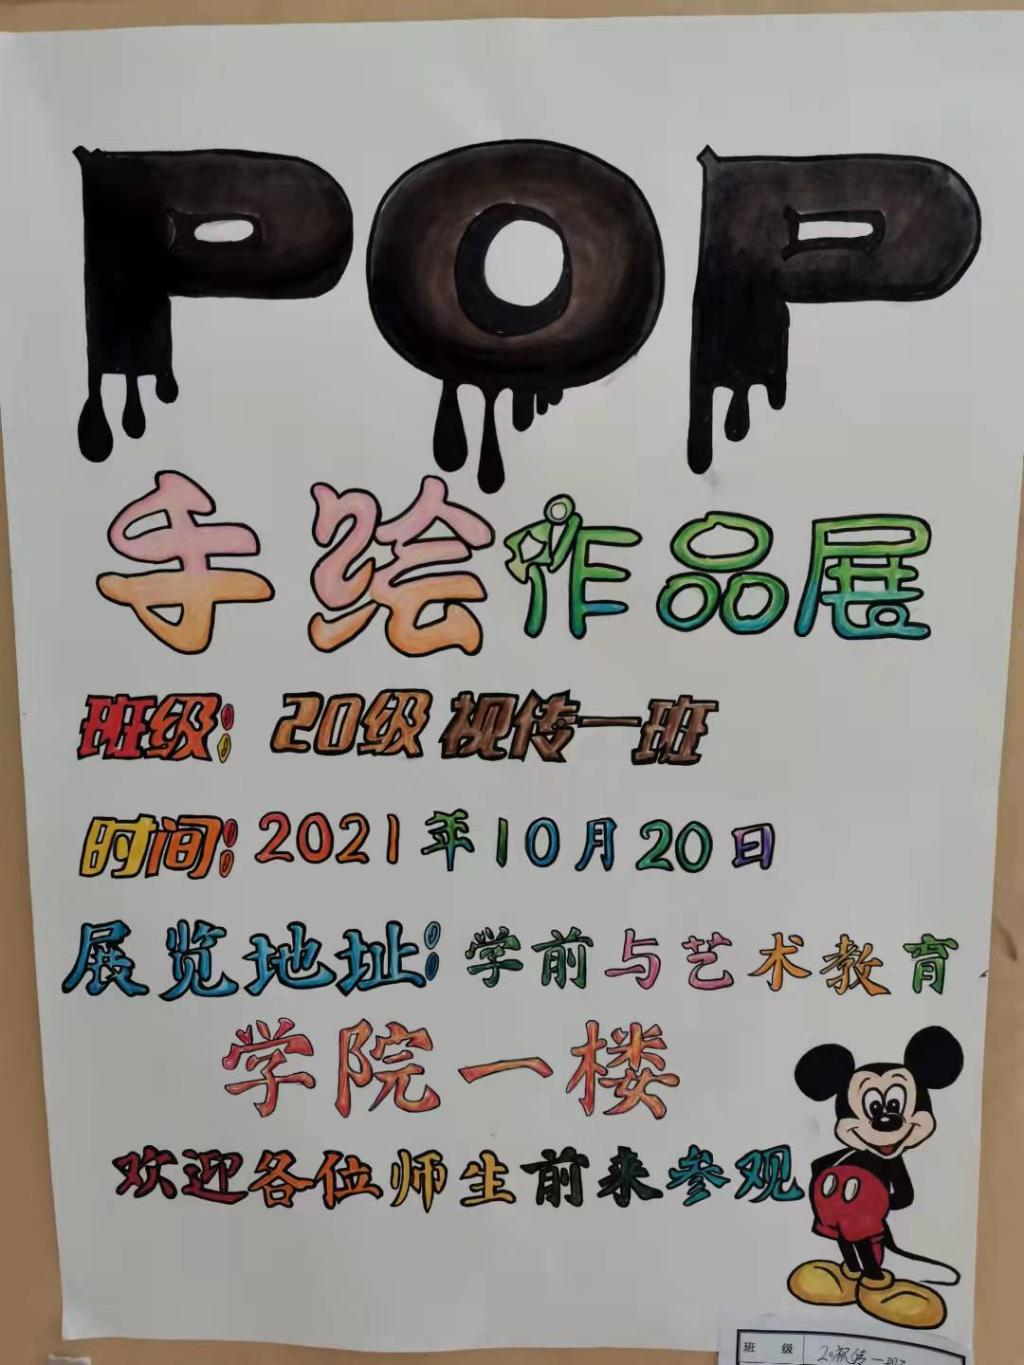 POP
手绘作品展
班级: 20级视传一班
时间: 2021年10月20日
展览地址: 学前与艺术教育
学院一楼
欢迎各位师生前来参观
班 级 20视传一班